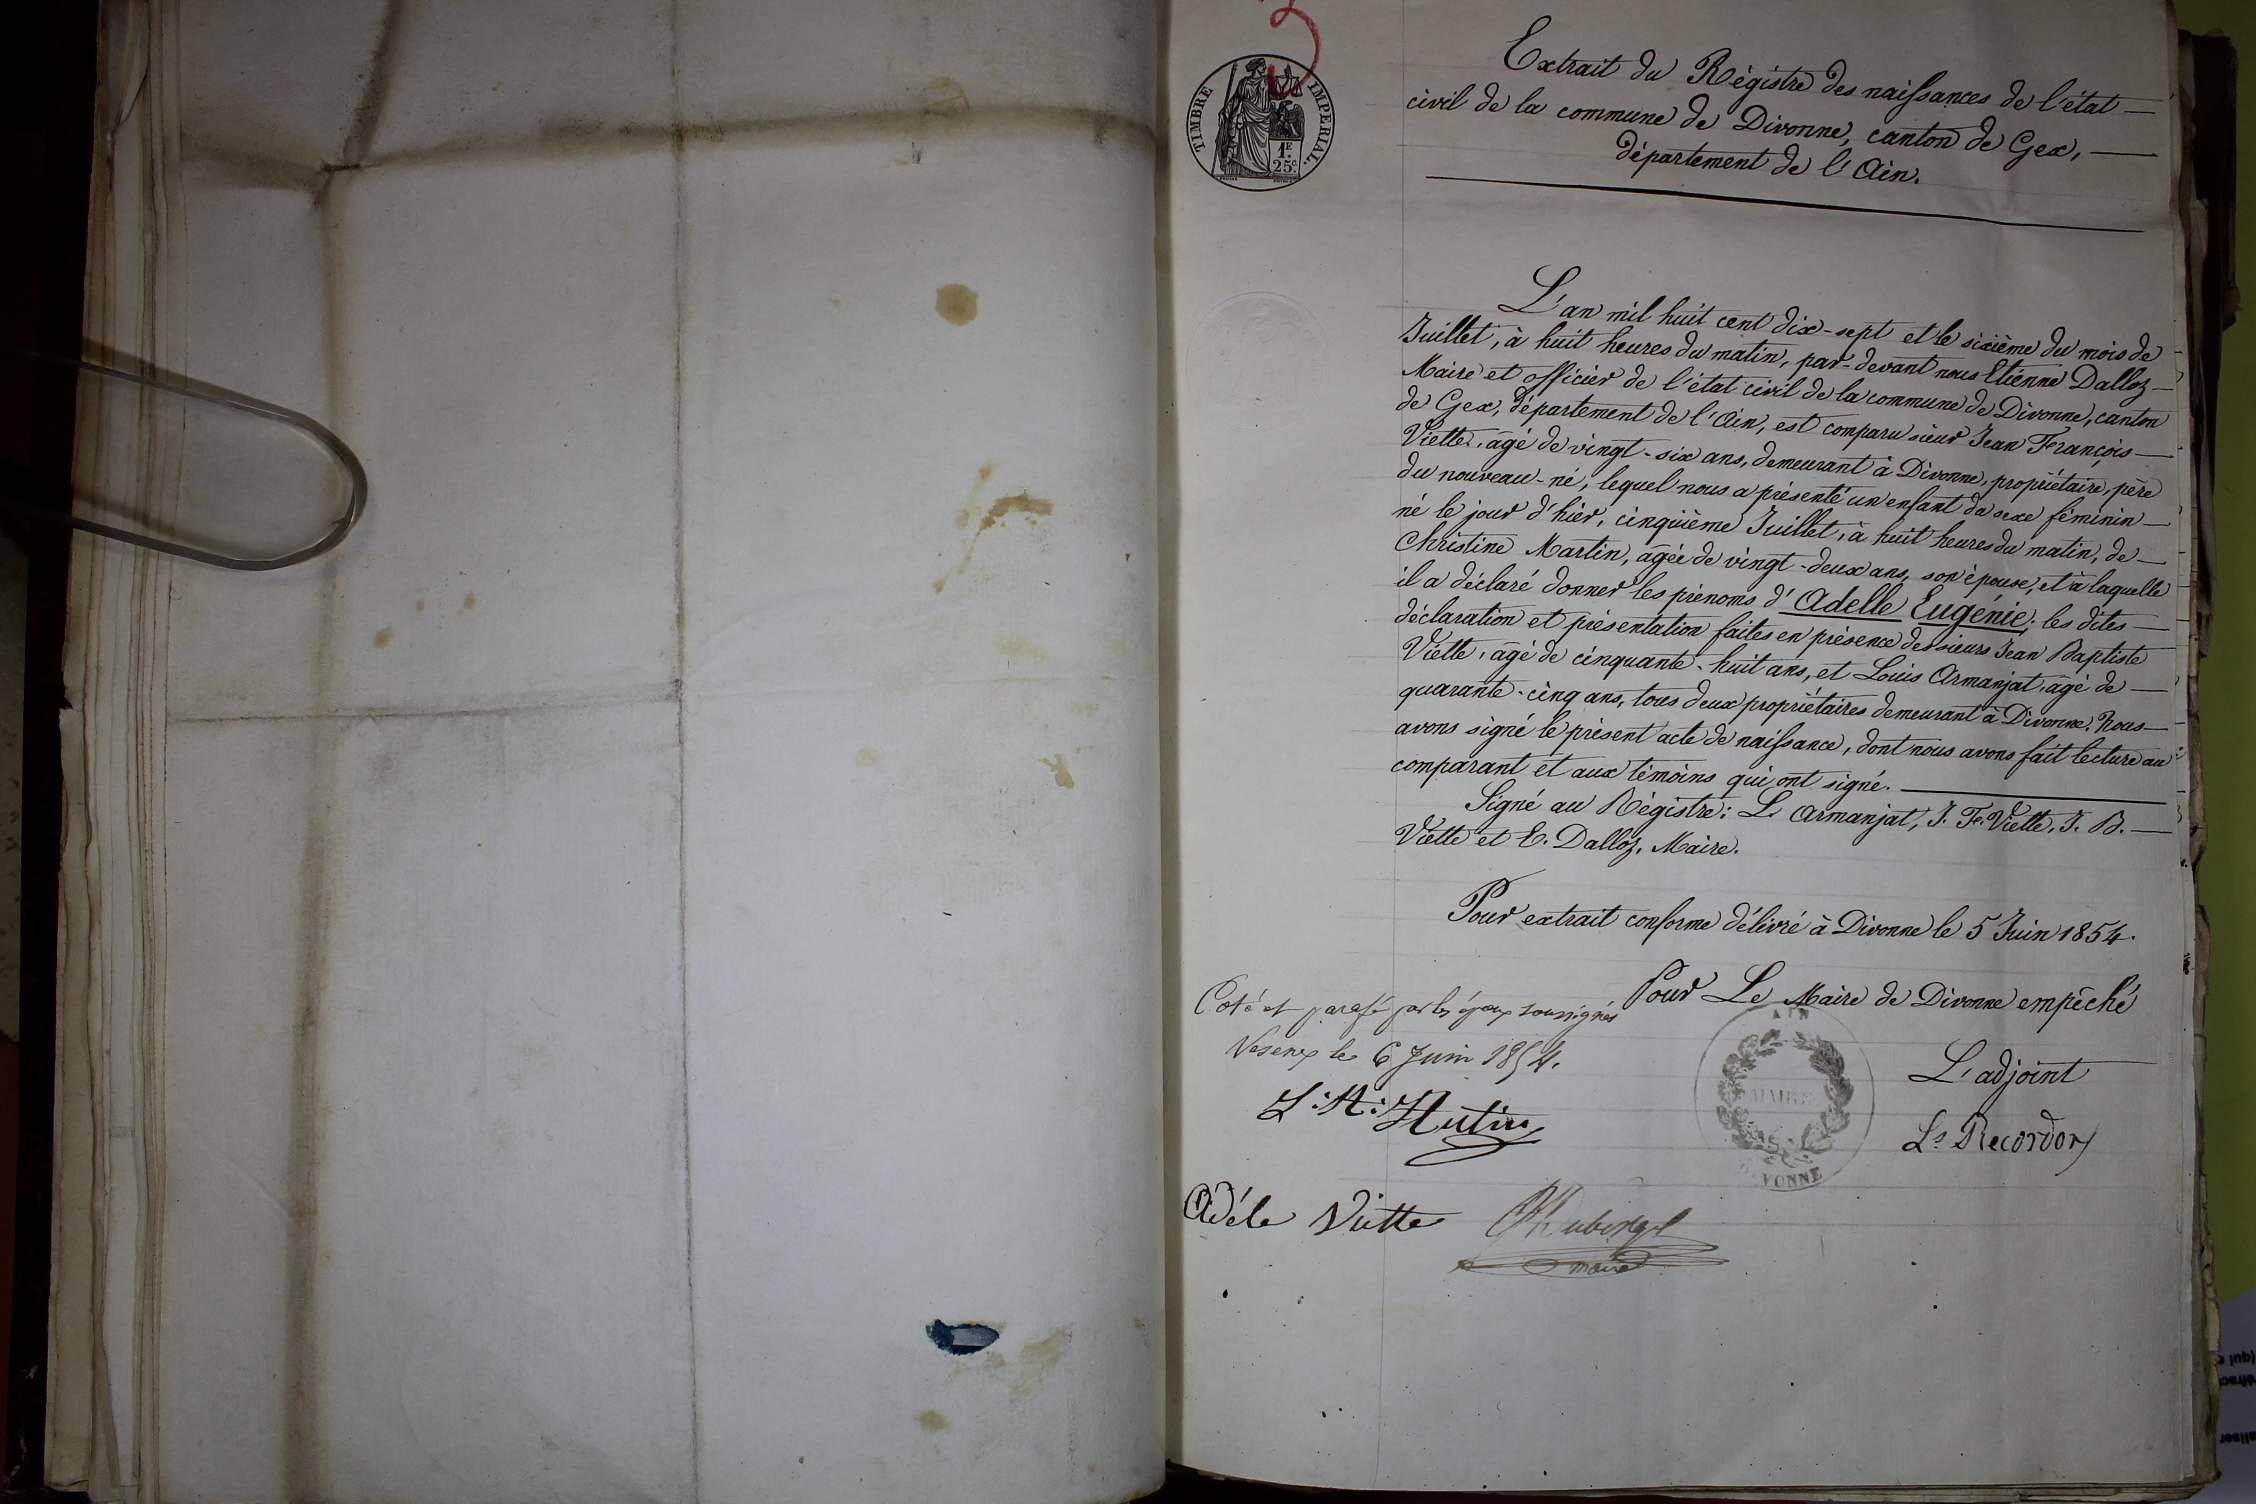 3
TIMBRE IMPERIAL.
1F.
25c.
Extrait du Régistre des naissances de l'état
civil de la commune de Divonne, canton de Gex,
département de l'Ain.
L'an mil huit cent dix-sept et le sixième du mois de
Juillet, à huit heures du matin, par-devant nous Etienne Dalloz
Maire et officier de l'état civil de la commune de Divonne, canton
de Gex, département de l'Ain, est comparu sieur Jean François
Viette, âgé de vingt-six ans, demeurant à Divonne, propriétaire, père
du nouveau-né, lequel nous a présenté un enfant du sexe féminin
né le jour d'hier, cinquième Juillet, à huit heures du matin, de
Christine Martin, agée de vingt-deux ans, son épouse, et à laquelle
il a déclaré donner les prénoms d'Adelle Eugénie; les dites
déclaration et présentation faites en présence des sieurs Jean Baptiste
Viette, âgé de cinquante-huit ans, et Louis Armanjat, âgé de
quarante-cinq ans, tous deux propriétaires demeurant à Divonne. Nous
avons signé le présent acte de naissance, dont nous avons fait lecture au
comparant et aux témoins qui ont signé.
Signé au Régistre: L. Armanjat, J. F. Viette, J. B.
Viette et E. Dalloz, Maire.
Pour extrait conforme délivré à Divonne le 5 Juin 1854.
Pour Le Maire de Divonne empêché
Coté et parafé par les époux soussignés
Vesenex le 6 Juin 1854.
AIN
MAIRIE
DIVONNE
L'adjoint
Ls Recordon
L: A: Hutin
Adéle Viette
maire